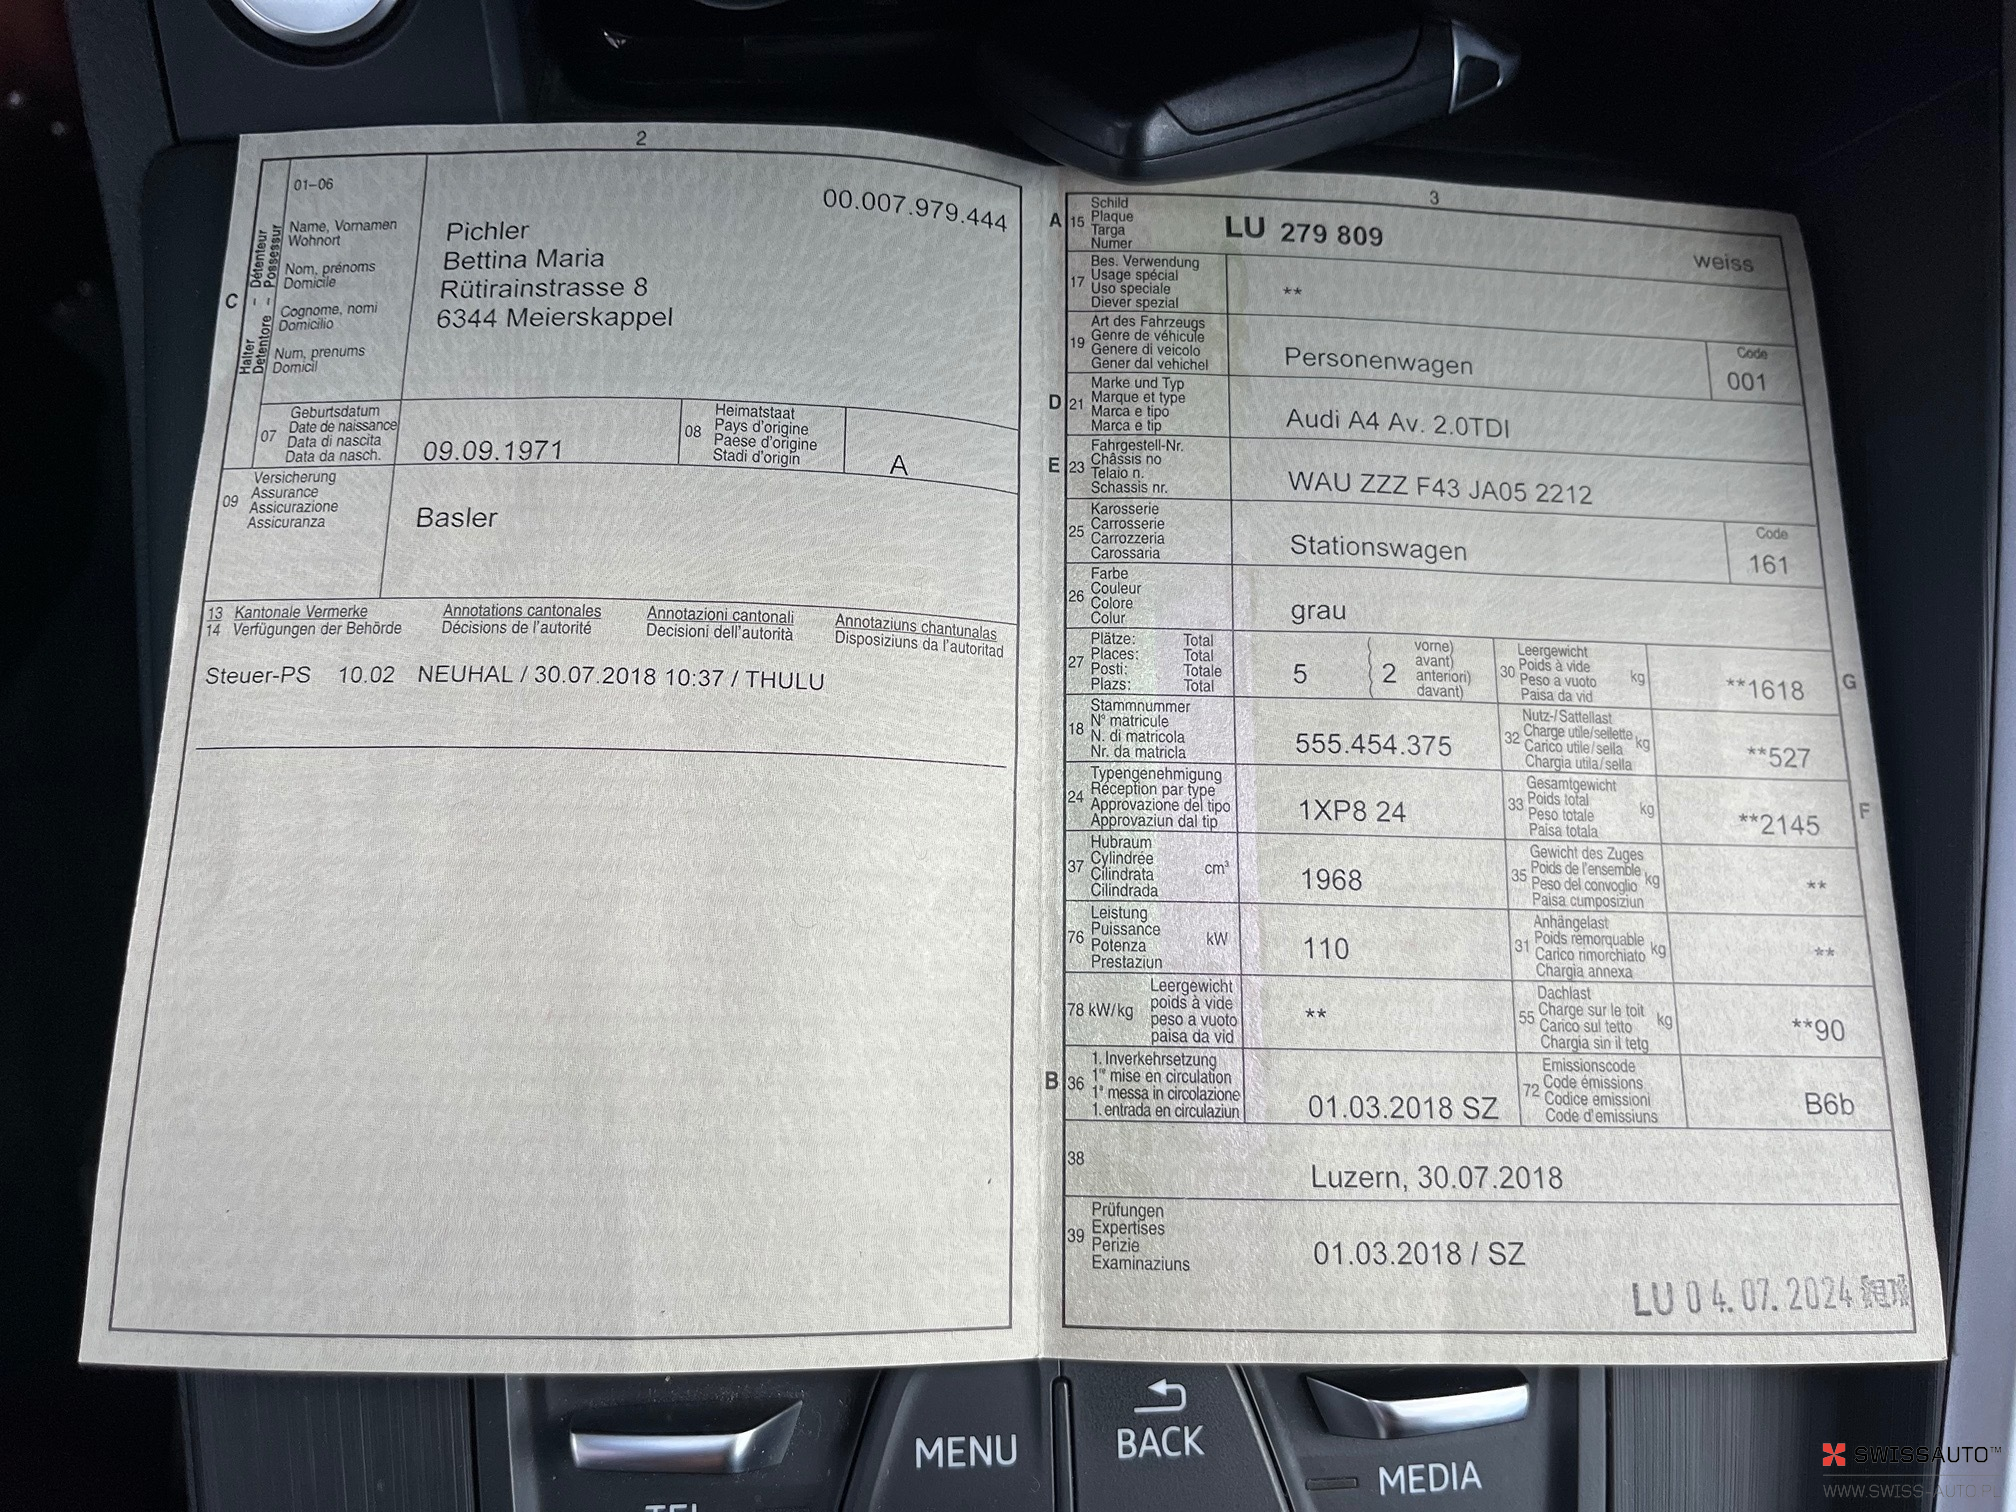 2
01–06
00.007.979.444
C
Halter – Détenteur
Detentore – Possessur
Name, Vornamen
Wohnort
Nom, prénoms
Domicile
Cognome, nomi
Domicilio
Num, prenums
Domicil
Pichler
Bettina Maria
Rütirainstrasse 8
6344 Meierskappel
07
Geburtsdatum
Date de naissance
Data di nascita
Data da nasch.
09.09.1971
08
Heimatstaat
Pays d'origine
Paese d'origine
Stadi d'origin
A
09
Versicherung
Assurance
Assicurazione
Assicuranza
Basler
13 Kantonale Vermerke Annotations cantonales Annotazioni cantonali Annotaziuns chantunalas
14 Verfügungen der Behörde Décisions de l'autorité Decisioni dell'autorità Disposiziuns da l'autoritad
Steuer-PS 10.02 NEUHAL / 30.07.2018 10:37 / THULU
3
A 15
Schild
Plaque
Targa
Numer
LU 279 809
weiss
17
Bes. Verwendung
Usage spécial
Uso speciale
Diever spezial
**
19
Art des Fahrzeugs
Genre de véhicule
Genere di veicolo
Gener dal vehichel
Personenwagen
Code
001
D 21
Marke und Typ
Marque et type
Marca e tipo
Marca e tip
Audi A4 Av. 2.0TDI
E 23
Fahrgestell-Nr.
Châssis no
Telaio n.
Schassis nr.
WAU ZZZ F43 JA05 2212
25
Karosserie
Carrosserie
Carrozzeria
Carossaria
Stationswagen
Code
161
26
Farbe
Couleur
Colore
Colur
grau
27
Plätze: Total
Places: Total
Posti: Totale
Plazs: Total
5
2
vorne)
avant)
anteriori)
davant)
30
Leergewicht
Poids à vide
Peso a vuoto
Paisa da vid
kg
**1618
G
18
Stammnummer
N° matricule
N. di matricola
Nr. da matricla
555.454.375
32
Nutz-/Sattellast
Charge utile/sellette
Carico utile/sella
Chargia utila/sella
kg
**527
24
Typengenehmigung
Réception par type
Approvazione del tipo
Approvaziun dal tip
1XP8 24
33
Gesamtgewicht
Poids total
Peso totale
Paisa totala
kg
**2145
F
37
Hubraum
Cylindrée
Cilindrata
Cilindrada
cm³
1968
35
Gewicht des Zuges
Poids de l'ensemble
Peso del convoglio
Paisa cumposiziun
kg
**
76
Leistung
Puissance
Potenza
Prestaziun
kW
110
31
Anhängelast
Poids remorquable
Carico rimorchiato
Chargia annexa
kg
**
78 kW/kg
Leergewicht
poids à vide
peso a vuoto
paisa da vid
**
55
Dachlast
Charge sur le toit
Carico sul tetto
Chargia sin il tetg
kg
**90
B 36
1. Inverkehrsetzung
1re mise en circulation
1a messa in circolazione
1. entrada en circulaziun
01.03.2018 SZ
72
Emissionscode
Code émissions
Codice emissioni
Code d'emissiuns
B6b
38
Luzern, 30.07.2018
39
Prüfungen
Expertises
Perizie
Examinaziuns
01.03.2018 / SZ
LU 04.07.2024
MENU
BACK
MEDIA
TEL
SWISSAUTO™
WWW.SWISS-AUTO.PL